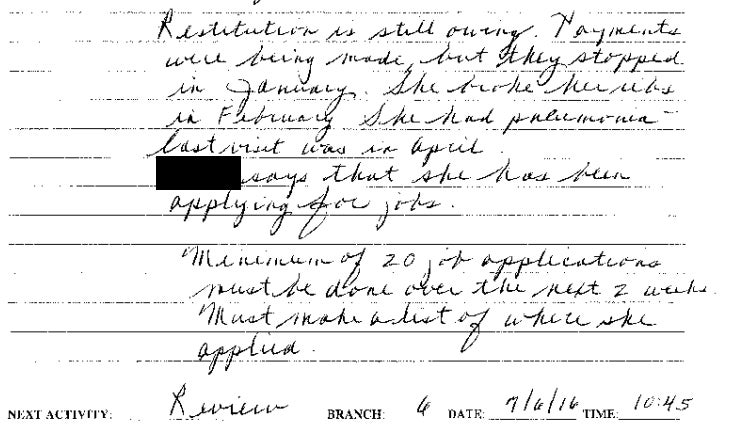 Restitution is still owing. Payments
were being made, but they stopped
in January. She broke her ribs
in February She had pneumonia -
last visit was in April.
says that she has been
applying for jobs.
"Minimum of 20 job applications
must be done over the next 2 weeks.
"Must make a list of where she
applied.
NEXT ACTIVITY: Review BRANCH: 6 DATE: 7/6/16 TIME: 10:45